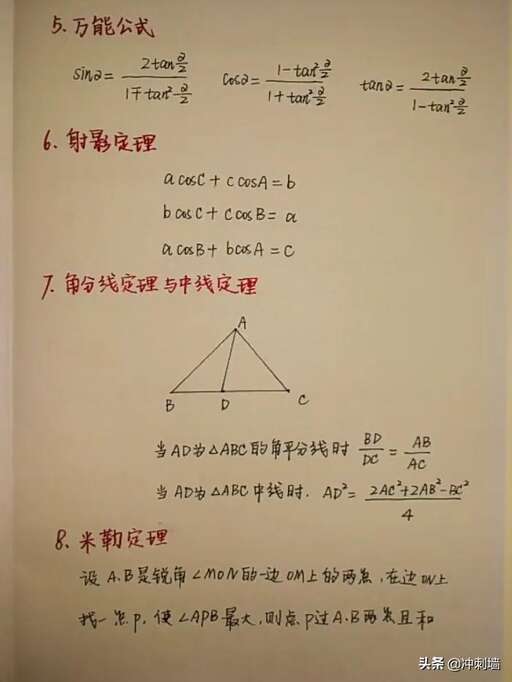 5. 万能公式
sin2 = 2tan 2/2 / 1+tan² 2/2 cos2 = 1-tan² 2/2 / 1+tan² 2/2 tan2 = 2tan 2/2 / 1-tan² 2/2
6. 射影定理
a cosC + c cosA = b
b cosC + c cosB = a
a cosB + b cosA = C
7. 角分线定理与中线定理
A
B D C
当AD为△ABC的角平分线时 BD/DC = AB/AC
当AD为△ABC中线时. AD² = 2AC²+2AB²-BC² / 4
8. 米勒定理
设A.B是锐角∠MON的一边OM上的两点,在边ON上
找一点P,使∠APB最大,则点P过A.B两点且和
头条 @冲刺墙